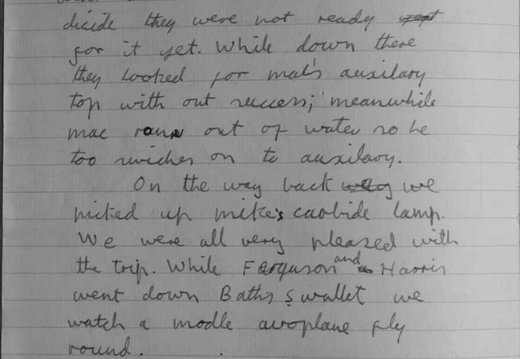 decide they were not ready
for it yet. While down there
they looked for mal's auxilary
top with out success; meanwhile
mac rann out of water so he
too swiches on to auxilary.
On the way back way we
picked up mike's carbide lamp.
We were all very pleased with
the trip. While Ferguson and Harris
went down Baths swallet we
watch a modle aeroplane fly
round.